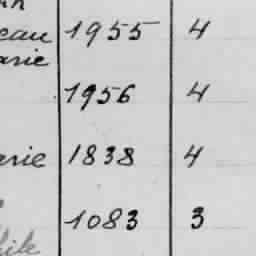 eau 1955 4
arie
1956 4
arie 1838 4
1083 3